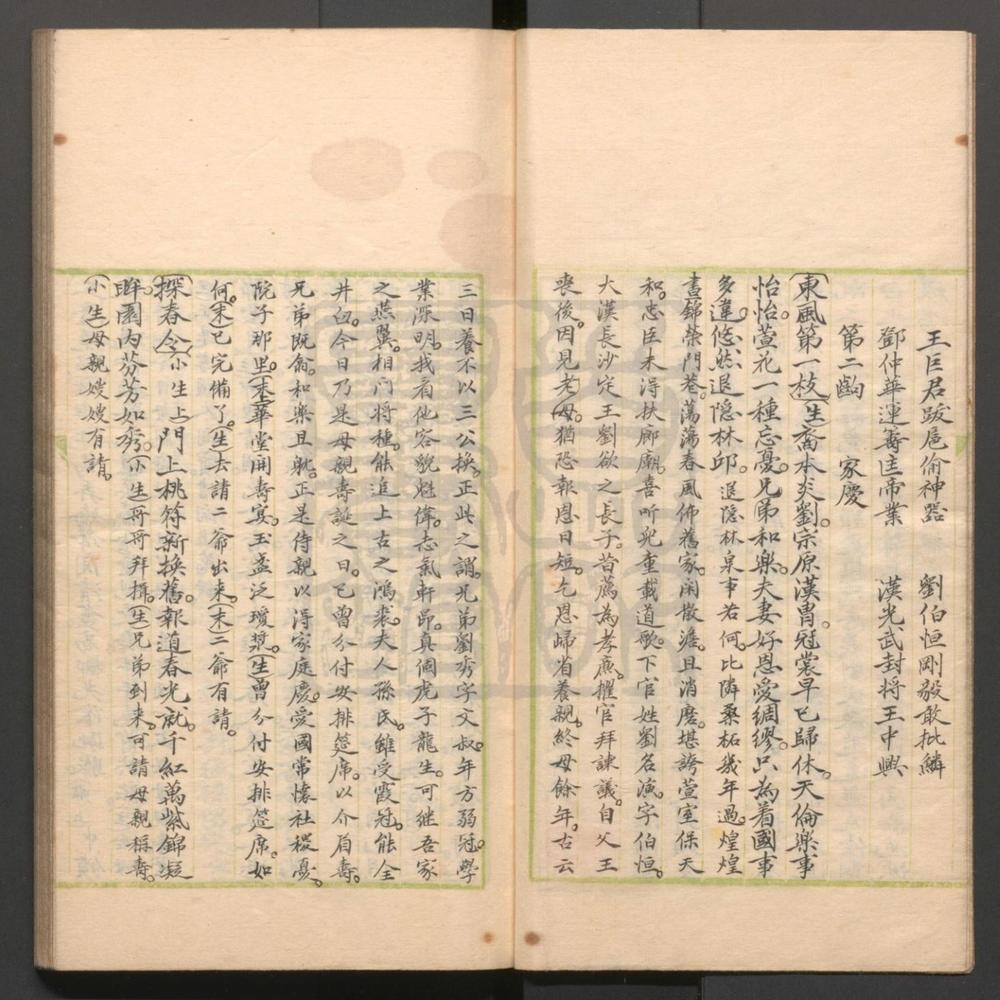 王巨君跋扈偷神器　劉伯恒剛毅敢批鱗
鄧仲華運籌匡帝業　漢光武封將王中興
第二齣　家慶
東風第一枝（生）裔本炎劉。宗原漢胄。冠裳早已歸休。天倫樂事
怡怡。萱花一種忘憂。兄弟和樂。夫妻好恩愛綢繆。只為着國事
多違。悠然退隱林邱。退隱林泉事若何。比隣桑柘幾年過。煌煌
晝錦榮門巷。蕩蕩春風佈舊家。閑散澹。且消磨。堪誇萱室保天
和。忠臣未得扶廊廟。喜听兒童載道歌。下官姓劉名演。字伯恒。
大漢長沙定王劉欲之長子。昔薦為孝廉。擢官拜諫議。自父王
喪後。因見老母。猶恐報恩日短。乞恩歸省養親。終母餘年。古云
三日養不以三公換。正此之謂。兄弟劉秀字文叔。年方弱冠。學
業深明。我看他容貌魁偉。志氣軒昂。真個虎子龍生。可继吾家
之燕翼。相门將種。能追上古之鴻裘。夫人孫氏。雖受霞冠。能全
井臼。今日乃是母親壽誕之日。已曾分付安排筵席。以介眉壽。
兄弟既翕。和樂且躭。正是侍親以得家庭慶。愛國常懷社稷憂。
院子那里。（末）華堂開壽宴。玉盞泛瓊漿。（生）曾分付安排筵席。如
何。（末）已完備了。（生）去請二爺出來。（末）二爺有請。
探春令（小生上）門上桃符新換舊。報道春光就。千紅萬紫錦凝
眸。園内芬芳如秀。（小生）哥哥拜揖。（生）兄弟到來。可請母親稱壽。
（小生）母親嫂嫂有請。